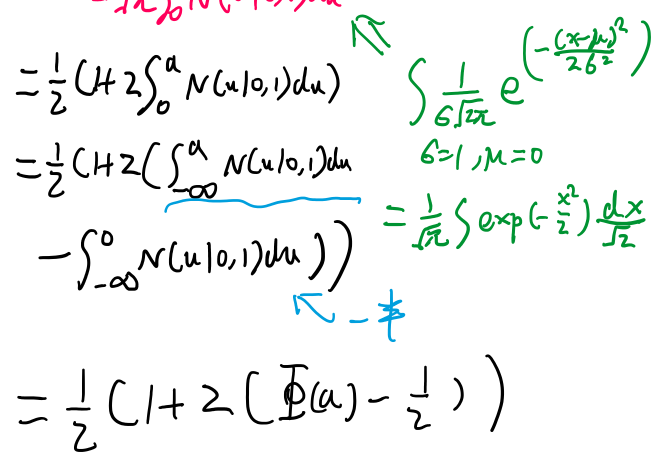 = 1/2 (1+2∫₀ᵃ N(u|0,1)du)
= 1/2 (1+2(∫₋∞ᵃ N(u|0,1)du
-∫₋∞⁰ N(u|0,1)du))
一半
= 1/2 (1+2(Φ(a)-1/2))
∫ 1/(6√2π) e^(-(x-μ)²/26²)
6=1, μ=0
= 1/√π ∫ exp(-x²/2) dx/√2